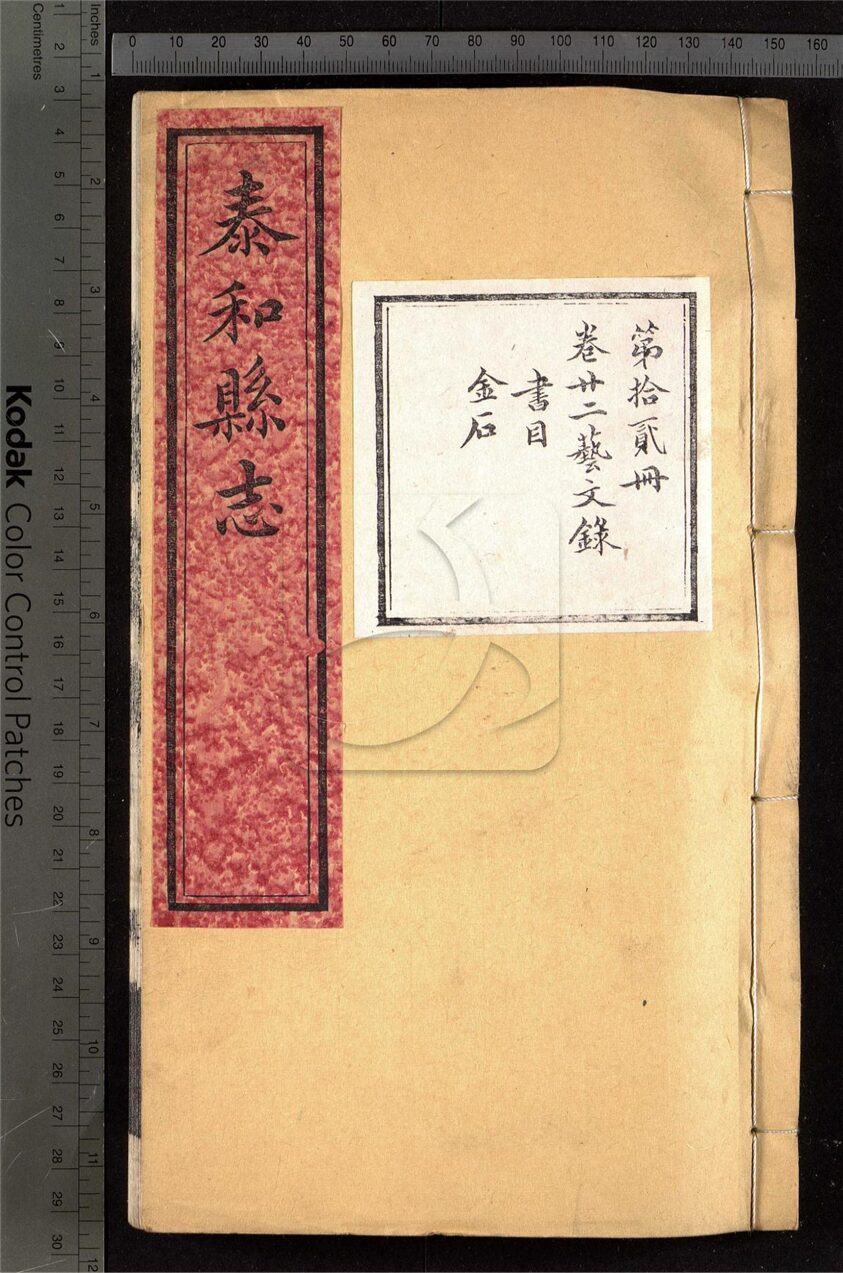 泰和縣志
第拾貳冊
卷廿二藝文錄
書目
金石
0 10 20 30 40 50 60 70 80 90 100 110 120 130 140 150 160
Inches 1 2 3 4 5 6 7 8 9 10 11 12
Centimetres 1 2 3 4 5 6 7 8 9 10 11 12 13 14 15 16 17 18 19 20 21 22 23 24 25 26 27 28 29 30
Kodak Color Control Patches